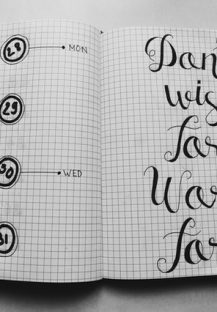 28 MON
29
30 WED
31
Don'
wis
for
Wor
for